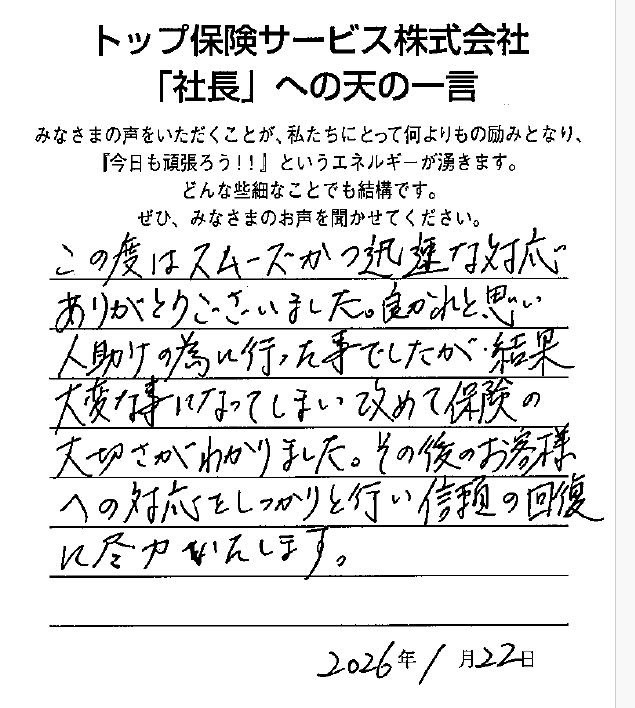 トップ保険サービス株式会社
「社長」への天の一言
みなさまの声をいただくことが、私たちにとって何よりもの励みとなり、
『今日も頑張ろう！！』というエネルギーが湧きます。
どんな些細なことでも結構です。
ぜひ、みなさまのお声を聞かせてください。
この度はスムーズかつ迅速な対応
ありがとうございました。良かれと思い
人助けの為に行った事でしたが、結果
大変な事になってしまい改めて保険の
大切さがわかりました。その後のお客様
への対応をしっかりと行い信頼の回復
に尽力いたします。
2026年1月22日